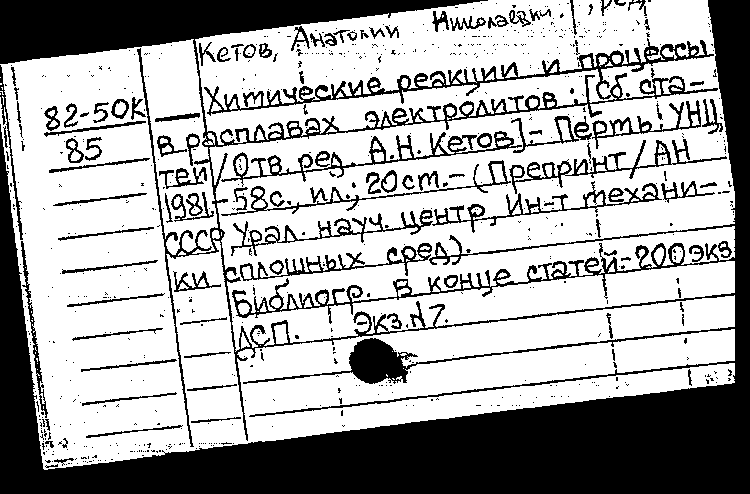 Кетов, Анатолий Николаевич., ред.
82-50К Химические реакции и процессы
85 в расплавах электролитов : [Сб. ста-
тей / Отв. ред. А.Н. Кетов].- Пермь: УНЦ,
1981.- 58с., ил.; 20 см.- (Препринт / АН
СССР, Урал. науч. центр, Ин-т механи-
ки сплошных сред).
Библиогр. в конце статей.- 200 экз.
ДСП. Экз. N 7.